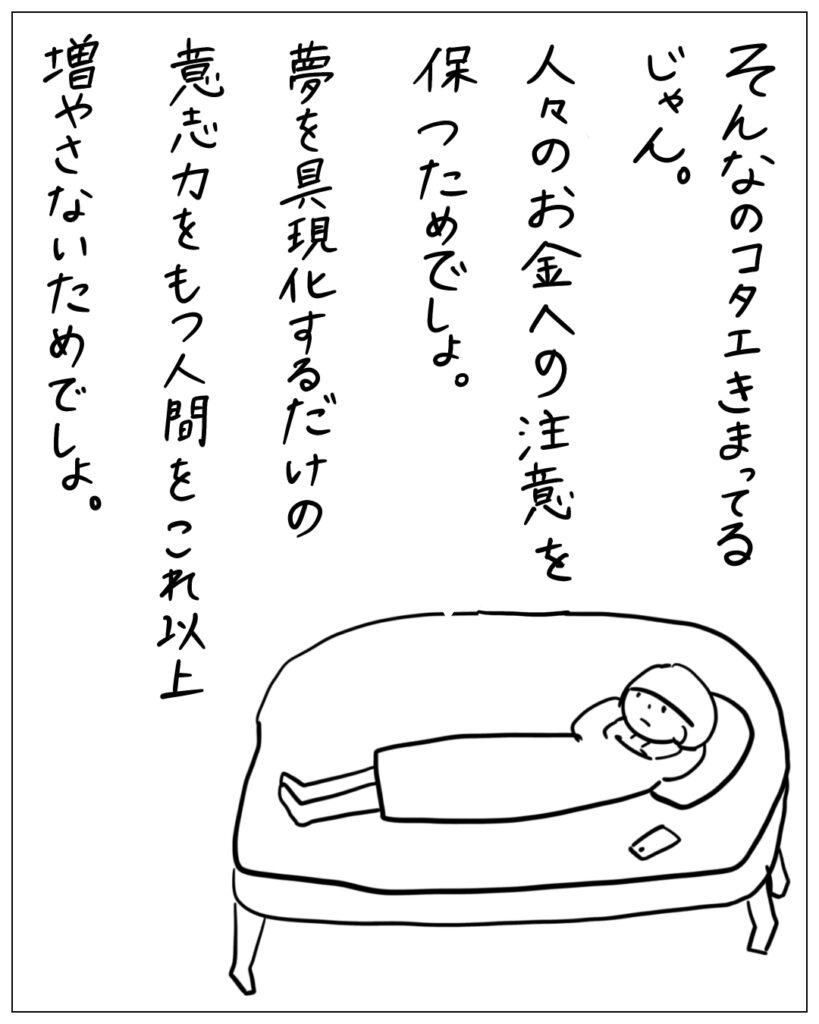 そんなのコタエきまってる
じゃん。
人々のお金への注意を
保つためでしょ。
夢を具現化するだけの
意志力をもつ人間をこれ以上
増やさないためでしょ。